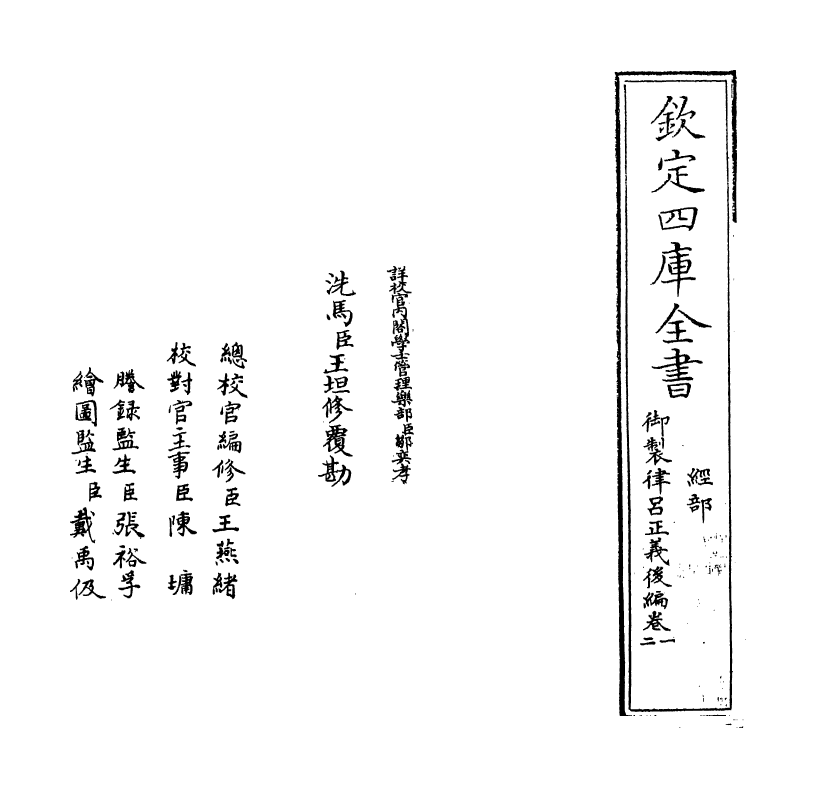 欽定四庫全書
經部
御製律呂正義後編卷一
二
詳校官內閣學士管理樂部臣鄒奕孝
洗馬臣王坦修覆勘
總校官編修臣王燕緒
校對官主事臣陳墉
謄錄監生臣張裕孚
繪圖監生臣戴禹伋